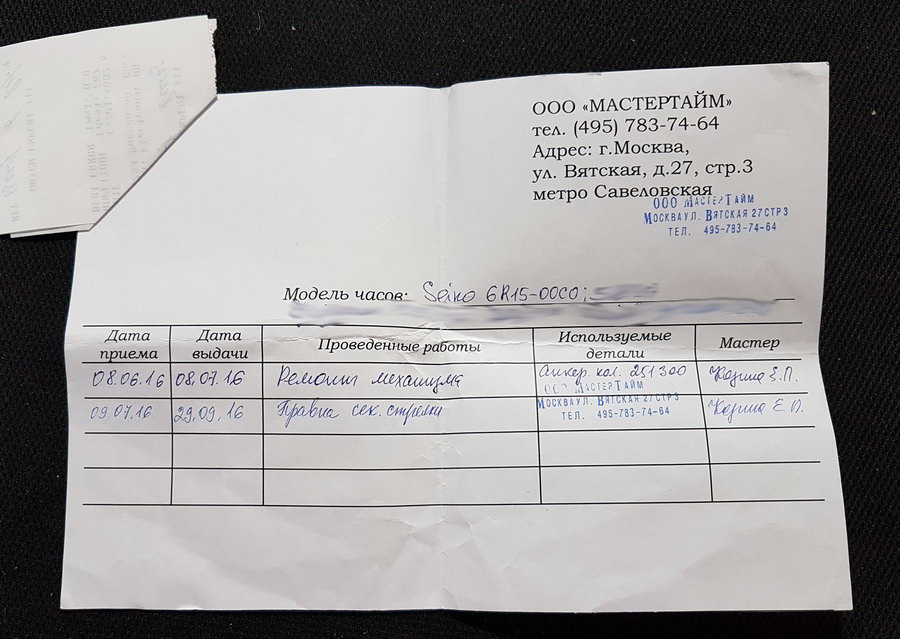 ООО «МАСТЕРТАЙМ»
тел. (495) 783-74-64
Адрес: г.Москва,
ул. Вятская, д.27, стр.3
метро Савеловская
ООО МАСТЕРТАЙМ
МОСКВА УЛ. ВЯТСКАЯ 27 СТР 3
ТЕЛ. 495-783-74-64
Модель часов: Seiko 6R15-00C0;
Дата приема Дата выдачи Проведенные работы Используемые детали Мастер
08.06.16 08.07.16 Ремонт механизма Анкер. кол. 251300 Е.П.
ООО МАСТЕРТАЙМ
МОСКВА УЛ. ВЯТСКАЯ 27 СТР 3
ТЕЛ. 495-783-74-64
09.07.16 29.09.16 Правка сек. стрелки Е.П.